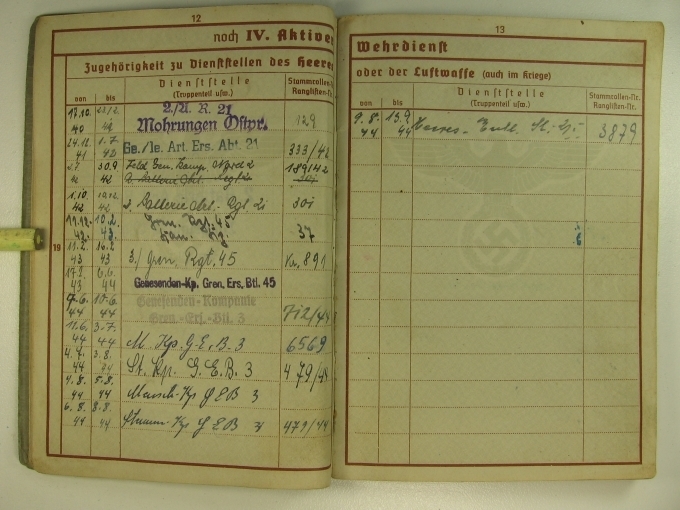 12
noch IV. Aktiver
Zugehörigkeit zu Dienststellen des Heeres
von
bis
Dienststelle
(Truppenteil usw.)
Stammrollen-Nr.
Ranglisten-Nr.
17.10.
40
2./A. R. 21
Mohrungen Ostpr.
129
24.12.
41
1.7.
42
Ge./le. Art. Ers. Abt. 21
333/42
30.9
42
189/42
1.10.
42
42
301
10.2.
43
37
11.2.
43
16.2
43
3./ Gren. Rgt. 45
891
17.2.
43
6.6.
44
Genesenden-Kp. Gren. Ers. Btl. 45
7.6.
44
10.6.
44
Genesenden-Kompanie
Gren.-Ers.-Btl. 3
712/44
11.6.
44
3.7.
44
M. Kp. G.E.B. 3
6569
4.7.
44
3.8.
44
St. Kp. G.E.B. 3
479/44
4.8.
44
5.8.
44
Marsch-Kp G E B 3
6.8.
44
8.8.
44
Stamm-Kp G E B 3
479/44
19
13
Wehrdienst
oder der Luftwaffe (auch im Kriege)
von
bis
Dienststelle
(Truppenteil usw.)
Stammrollen-Nr.
Ranglisten-Nr.
9.8.
44
13.9.
44
3879